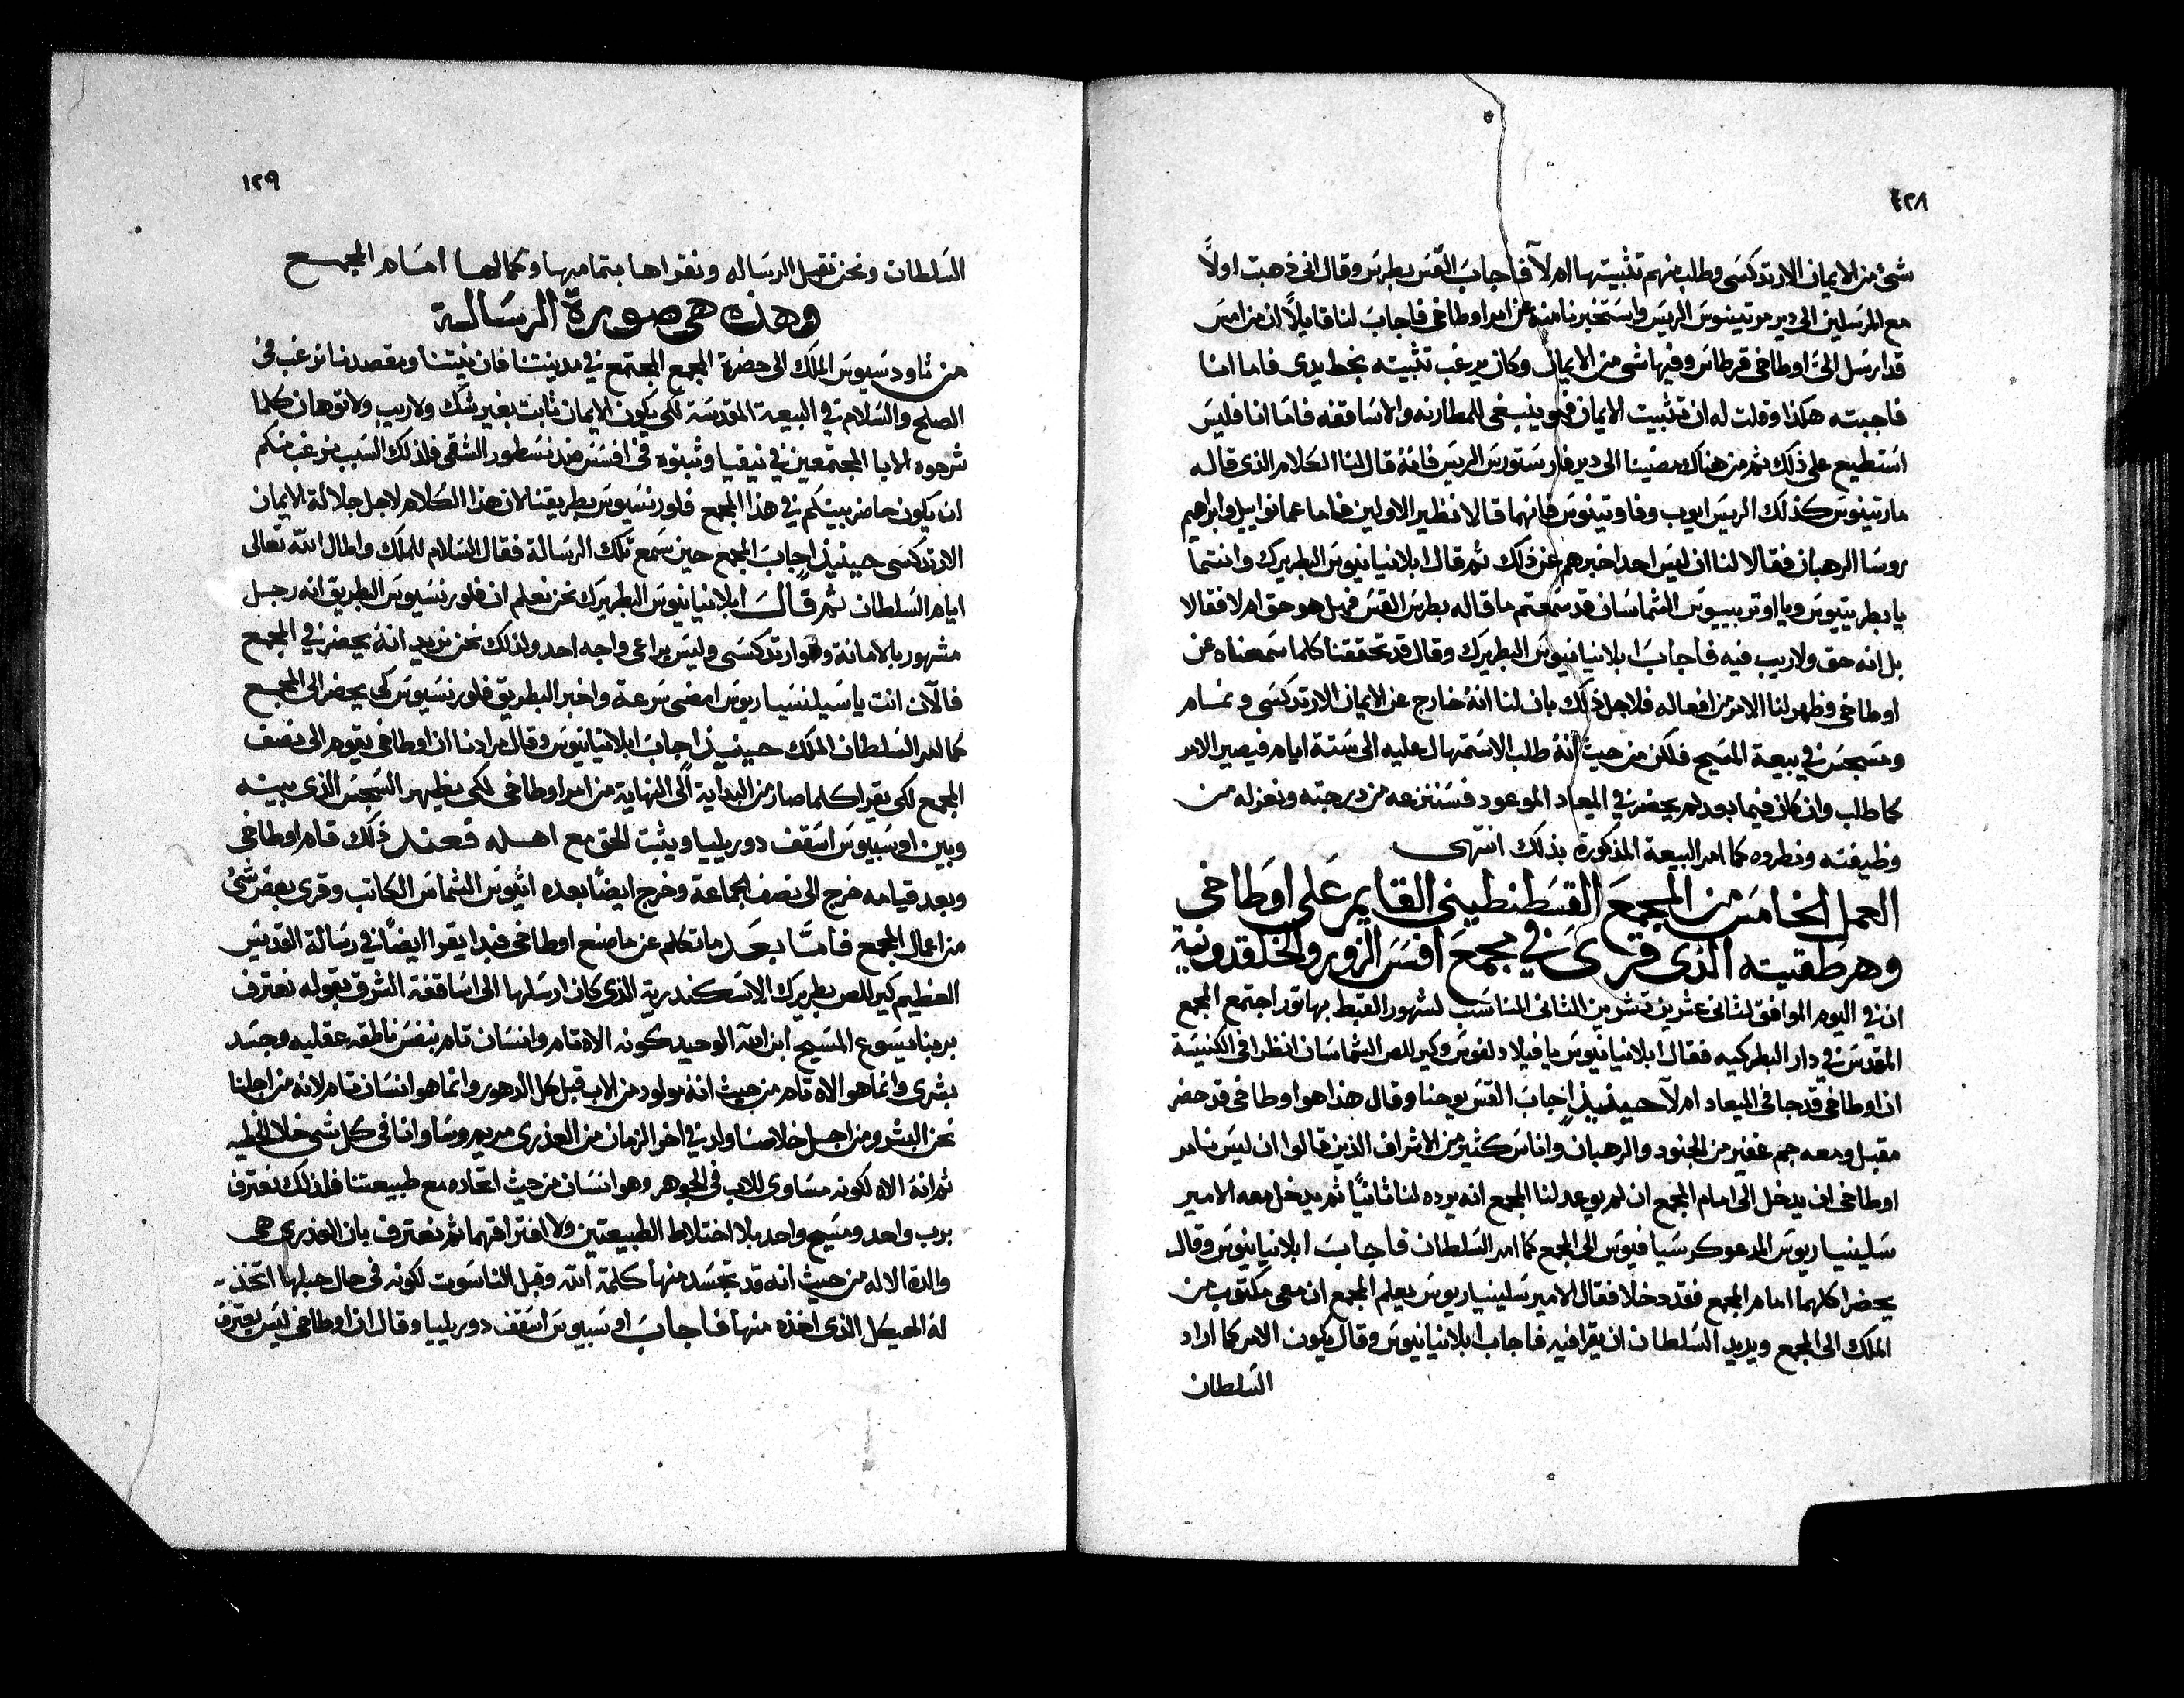 ١٢٨
شئ من الايمان الارتدكسى وطلب منهم تثبيتها ام لآ فاجاب القس بطرس وقال انى ذهبت اولاً
مع المرسلين الى دير مرتينوس الريس واستخبرنا منه عن امر اوطاخى فاجاب لنا قايلاً ان من امس
قد ارسل الىّ اوطاخى قرطاس وفيها شى من الايمان وكان يرغب تثبيته بخط يدى فاما انا
فاجبته هكذا وقلت له ان تثبيت الايمان فهو ينبغى للمطارنه والاساقفه فاما انا فليس
استطيع على ذلك ثم من هناك مضينا الى دير فارستورس الريس فانه قال لنا الكلام الذى قاله
مارتينوس كذلك الريس ايوب وفاوتينوس فانهما قالا نظير الاولين فاما عمانواييل وابراهيم
روسا الرهبان فقالا لنا ان ليس احد اخبرهم عن ذلك ثم قال ابلانيانيوس البطريرك وانتما
يا بطريتيوس ويا اوتربييوس الشماسان قد سمعتم ما قاله بطرس القس فهل هو حق ام لا فقالا
بل انه حق ولا ريب فيه فاجاب ابلانيانيوس البطريرك وقال قد تحققنا كلما سمعناه عن
اوطاخى وظهر لنا الامر من افعاله فلاجل ذلك بان لنا انه خارج عن الايمان الارتدكسى ونمام
ومسجس فى بيعة المسيح فلكن من حيث انه طلب الاستمهال عليه الى ستة ايام فيصير الامر
كما طلب وان كان فيما بعد لم يحضر فى الميعاد الموعود فسننزعه من درجته ونعزله من
وظيفته ونطرده كما امر البيعة المذكورة بذلك انتهى
العمل الخامس من المجمع القسطنطينى القايم على اوطاخى
وهرطقيته الذى قرى فى مجمع افسس الزور والخلقدونية
ان فى اليوم الموافق لثانى عشرين تشرين الثانى المناسب لشهور القبط بهاتور اجتمع المجمع
المقدس فى دار البطركيه فقال ابلانيانيوس يا فيلادلفوس وكيرللص الشماسان انظرا فى الكنيسة
ان اوطاخى قد جا فى الميعاد ام لآ حينيذٍ اجاب القس يوحنا وقال هذا هو اوطاخى قد حضر
مقبل ومعه جم غفير من الجنود والرهبان واناس كثير من الاشراف الذين قالوا ان ليس نامر
اوطاخى ان يدخل الى امام المجمع ان لم يوعد لنا المجمع انه يرده لنا ثانيًا ثم يدخل معه الامير
سلينسياريوس المدعو كرسيافيوس الى المجمع كما امر السلطان فاجاب ابلانيانيوس وقال
يحضرا كلهما امام المجمع فقد دخلا فقال الامير سلينسياريوس يعلم المجمع ان معى مكتوب من
الملك الى المجمع ويريد السلطان ان يقرا فيه فاجاب ابلانيانيوس وقال يكون الامر كما اراد
السلطان
١٢٩
السلطان ونحن نقبل الرساله ونقراها بتمامها وكمالها امام المجمع
وهذه هى صورة الرسالة
من تاودسيوس الملك الى حضرة المجمع المجتمع فى مدينتنا فان نيتنا ومقصدنا نرغب فى
الصلح والسلام فى البيعة المقدسة لكى يكون الايمان ثابت بغير شك ولا ريب ولا توهان كلما
شرحوه الابا المجتمعين فى نيقيا وثبتوه فى افسس ضد نسطور الشقى فلذلك السبب نرغب منكم
ان يكون حاضر بينكم فى هذا المجمع فلورنسيوس بطريقنا لان هذا الكلام لاجل جلالة الايمان
الارتدكسى حينيذٍ اجاب المجمع حين سمع تلك الرسالة فقال السلام للملك واطال الله تعالى
ايام السلطان ثم قال ابلانيانيوس البطريرك نحن نعلم ان فلورنسيوس البطريق انه رجل
مشهور بالامانة وهو ارتدكسى وليس يراعى واجه احد ولذلك نحن نريد انه يحضر فى المجمع
فالآن انت يا سيلنسياريوس امضى سرعة واخبر البطريق فلورنسيوس كى يحضر الى المجمع
كما امر السلطان الملك حينيذٍ اجاب ابلانيانيوس وقال مرادنا ان اوطاخى يقوم الى نصف
المجمع لكى يقرا كلما صار من البداية الى النهاية من امر اوطاخى لكى يظهر السجس الذى بينه
وبين اوسبيوس اسقف دوريليا ويثبت الحق مع اهله فعند ذلك قام اوطاخى
وبعد قيامه خرج الى نصف الجماعة وخرج ايضًا بعده اثيوس الشماس الكاتب وقرى بعض شئ
من اعمال المجمع فامّا بعد ما تكلم عن ما صنع اوطاخى فبدا يقرا ايضًا فى رسالة القديس
العظيم كيرللص بطريرك الاسكندرية الذى كان ارسلها الى اساقفة الشرق بقوله نعترف
بربنا يسوع المسيح ابن الله الوحيد كونه الاه تام وانسان تام بنفس ناطقه عقليه وجسد
بشرى وانما هو الاه تام من حيث انه مولود من الاب قبل كل الدهور وانما هو انسان تام لانه من اجلنا
نحن البشر ومن اجل خلاصنا ولد فى اخر الزمان من العذرى مريم وساوانا فى كل شى خلا الخطيه
ثم انه الاه لكونه مساوى للاب فى الجوهر وهو انسان من حيث اتحاده مع طبيعتنا فلذلك نعترف
برب واحد ومسيح واحد بلا اختلاط الطبيعتين ولا افتراقهما ثم نعترف بان العذرى هى
والدة الاله من حيث انه قد تجسد منها كلمة الله وقبل الناسوت لكونه فى حال حبلها اتخذ
له الهيكل الذى اخذه منها فاجاب اوسبيوس اسقف دوريليا وقال ان اوطاخى ليس يعترف